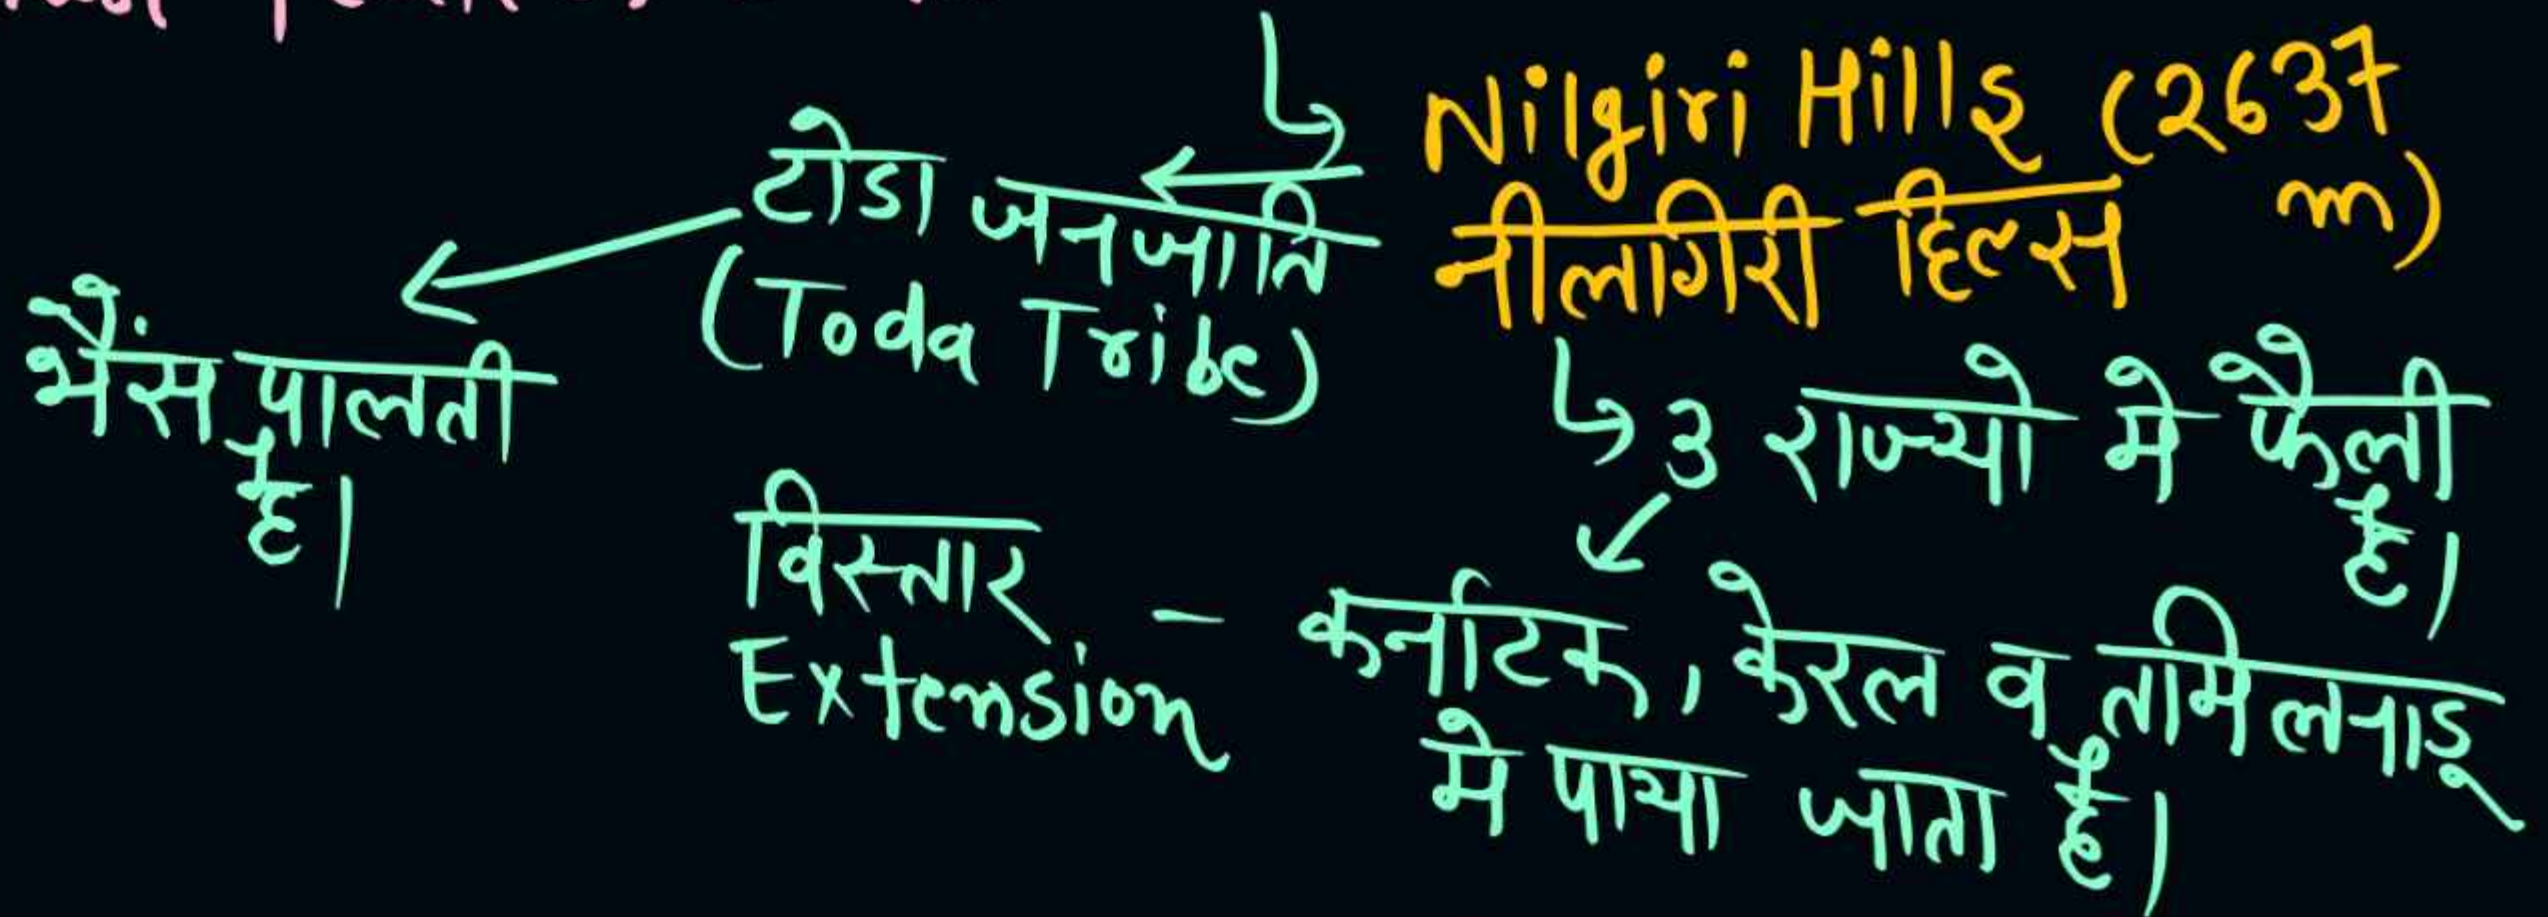 Nilgiri Hills (2637 m)
नीलगिरी हिल्स
टोडा जनजाति
(Toda Tribe)
भैंस पालती
है।
3 राज्यो मे फैली
है।
विस्तार
Extension - कर्नाटक, केरल व तमिलनाडू
मे पाया जाता है।